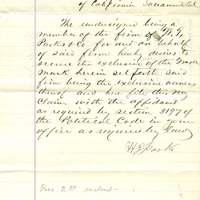 of California Sacramento Cal
The undersigned being a
member of the firm of
Parks & Co for and on behalf
of said firm hereby desires to
secure the exclusive of the Trade
Mark herein set forth said
firm being the exclusive owners
thereof and her file this my
Claim with the affidavit
as required by section 3197 of
the Political Code in your
office as required by law
Fees